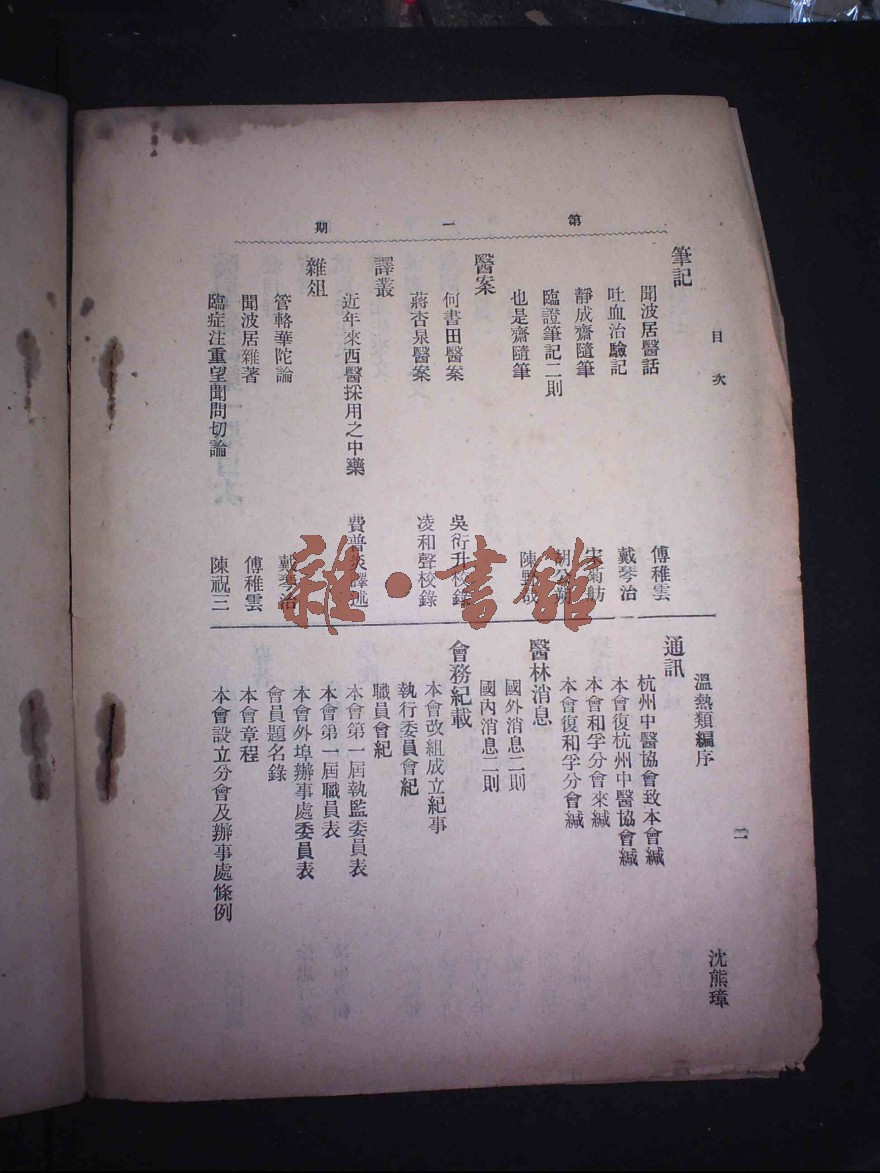 目次
二
第一期
筆記
聞波居醫話 傅稚雲
吐血治驗記 戴琴治
靜成齋隨筆 宋鞠舫
臨證筆記二則
也是齋隨筆
醫案
何書田醫案 吳衍升校錄
蔣杏泉醫案 凌和聲校錄
譯叢
近年來西醫採用之中藥 費普炎譯述
雜俎
管輅華陀論 戴琴治
聞波居雜著 傅稚雲
臨症注重望聞問切論 陳祝三
溫熱類編序 沈熊璋
通訊
杭州中醫協會致本會緘
本會復杭州中醫協會緘
本會和孚分會來緘
本會復和孚分會緘
醫林消息
國外消息二則
國內消息二則
會務紀載
本會改組成立紀事
執行委員會紀
職員會紀
本會第一屆執監委員表
本會第一屆職員表
本會外埠辦事處委員表
會員題名錄
本會章程
本會設立分會及辦事處條例
雜·書館